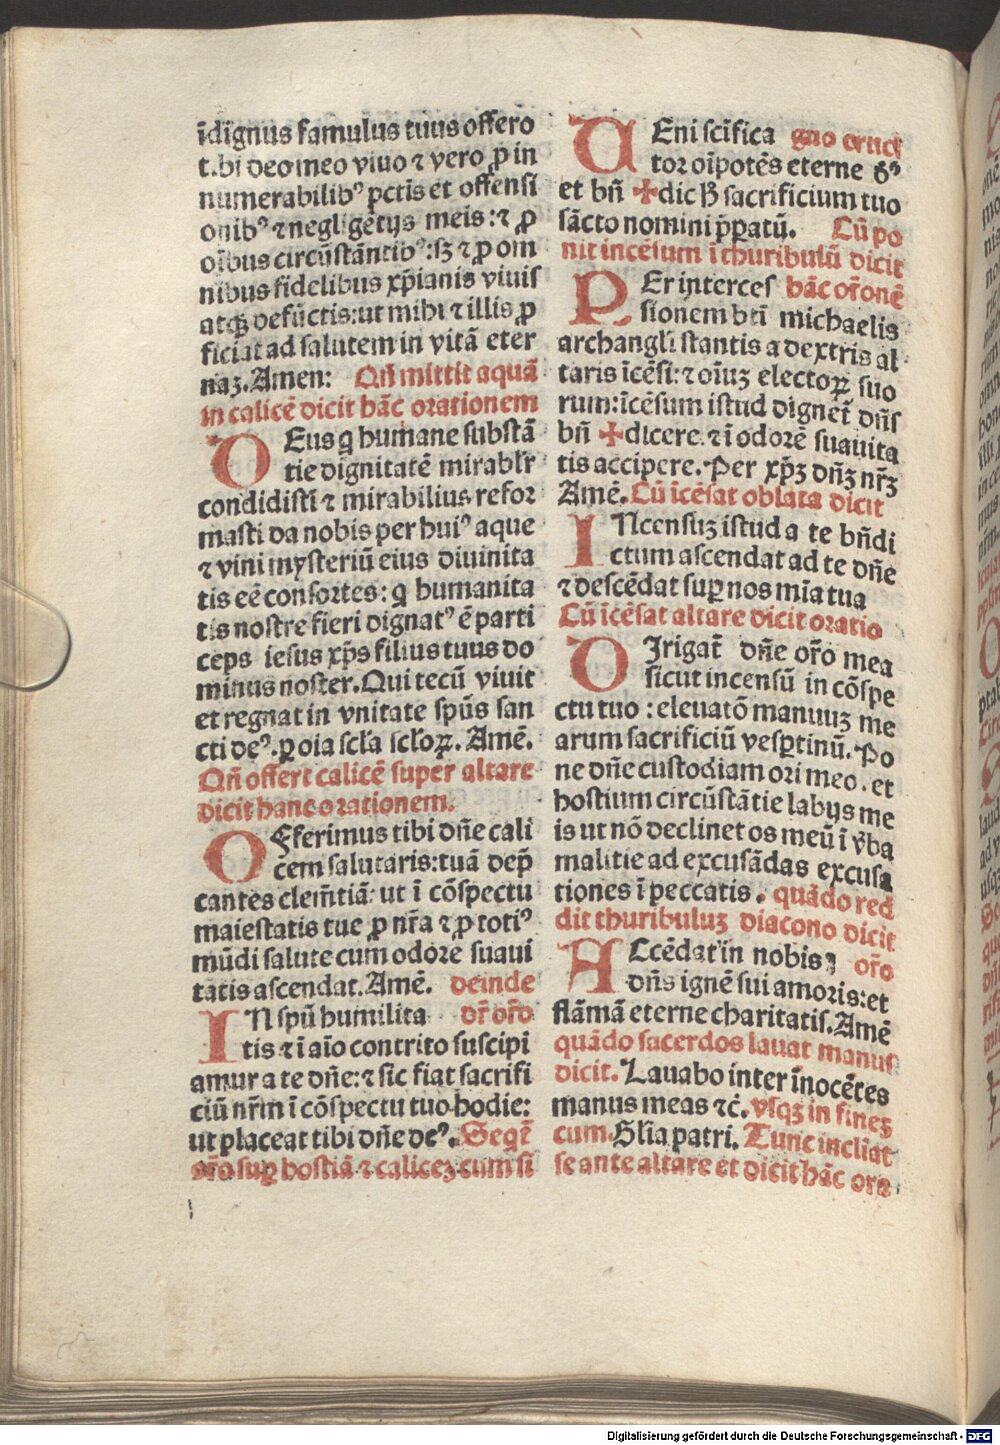 īdignus famulus tuus offero
t.bi deo meo viuo ⁊ vero ꝓ in
numerabilibꝰ pctīs et offensi
onibꝰ ⁊ negligētijs meis:⁊ ꝓ
oībus circūstātibꝰ:sꝫ ⁊ ꝓ om
nibus fidelibus xp̄ianis viuis
atqꝫ defūctis:ut mihi ⁊ illis ꝓ
ficiat ad salutem in vitā eter
naꝫ.Amen: Qn̄ mittit aquā
in calicē dicit hāc orationem
DEus q̄ humane substā
tie dignitatē mirabl'r
condidisti ⁊ mirabilius refor
masti da nobis per huiꝰ aque
⁊ vini mysteriū eius diuinita
tis eē consortes: q̄ humanita
tis nostre fieri dignatꝰ ē parti
ceps iesus xp̄s filius tuus do
minus noster.Qui tecū viuit
et regnat in vnitate spūs san
cti deꝰ.ꝑ oīa scl'a scl'oꝝ. Amē.
Qn̄ offert calicē super altare
dicit hanc orationem.
OFferimus tibi dn̄e cali
cem salutaris:tuā dep̄
cantes clem̄tiā: ut ī cōspectu
maiestatis tue ꝓ nr̄a ⁊ ꝓ totiꝰ
mūdi salute cum odore suaui
tatis ascendat.Amē. deinde
IN spū humilita dr̄ or̄o
tis ⁊ ī aīo contrito suscipi
amur a te dn̄e:⁊ sic fiat sacrifi
ciū nr̄m ī cōspectu tuo hodie:
ut placeat tibi dn̄e deꝰ. Seqr̄
or̄o suꝑ hostiā ⁊ calicez cum si
UEni sctīfica gno crucꝭ
tor oīpotēs eterne dꝰ
et bn̄ ✠ dic ꝧ sacrificium tuo
sācto nomini p̄ꝑatū. Cū po
nit incēsum ī thuribulū dicit
PEr interces hāc or̄onē
sionem btī michaelis
archangl'i stantis a dextris al
taris īcēsi:⁊ oīuꝫ electoꝝ suo
rum:īcēsum istud dignet̄ dn̄s
bn̄ ✠ dicere.⁊ ī odorē suauita
tis accipere.Per xp̄ꝫ dn̄ꝫ nr̄ꝫ
Amē. Cū īcēsat oblata dicit
INcensuꝫ istud a te bn̄di
ctum ascendat ad te dn̄e
⁊ descēdat suꝑ nos mīa tua
Cū īcēsat altare dicit oratio
DIrigat̄ dn̄e or̄o mea
sicut incensū in cōspe
ctu tuo : eleuatō manuuꝫ me
arum sacrificiū vesꝑtinū. Po
ne dn̄e custodiam ori meo . et
hostium circūstātie labijs me
is ut nō declinet os meū ī v̄ba
malitie ad excusādas excusa
tiones ī peccatis . quādo red
dit thuribuluꝫ diacono dicit
AScēdat in nobis or̄o
dn̄s ignē sui amoris:et
flāmā eterne charitatis.Amē
quādo sacerdos lauat manus
dicit. Lauabo inter īnocētes
manus meas ⁊c̄. vsqꝫ in fineꝫ
cum.Glia patri. Tunc incliat
se ante altare et dicit hāc ora
Digitalisierung gefördert durch die Deutsche Forschungsgemeinschaft - DFG